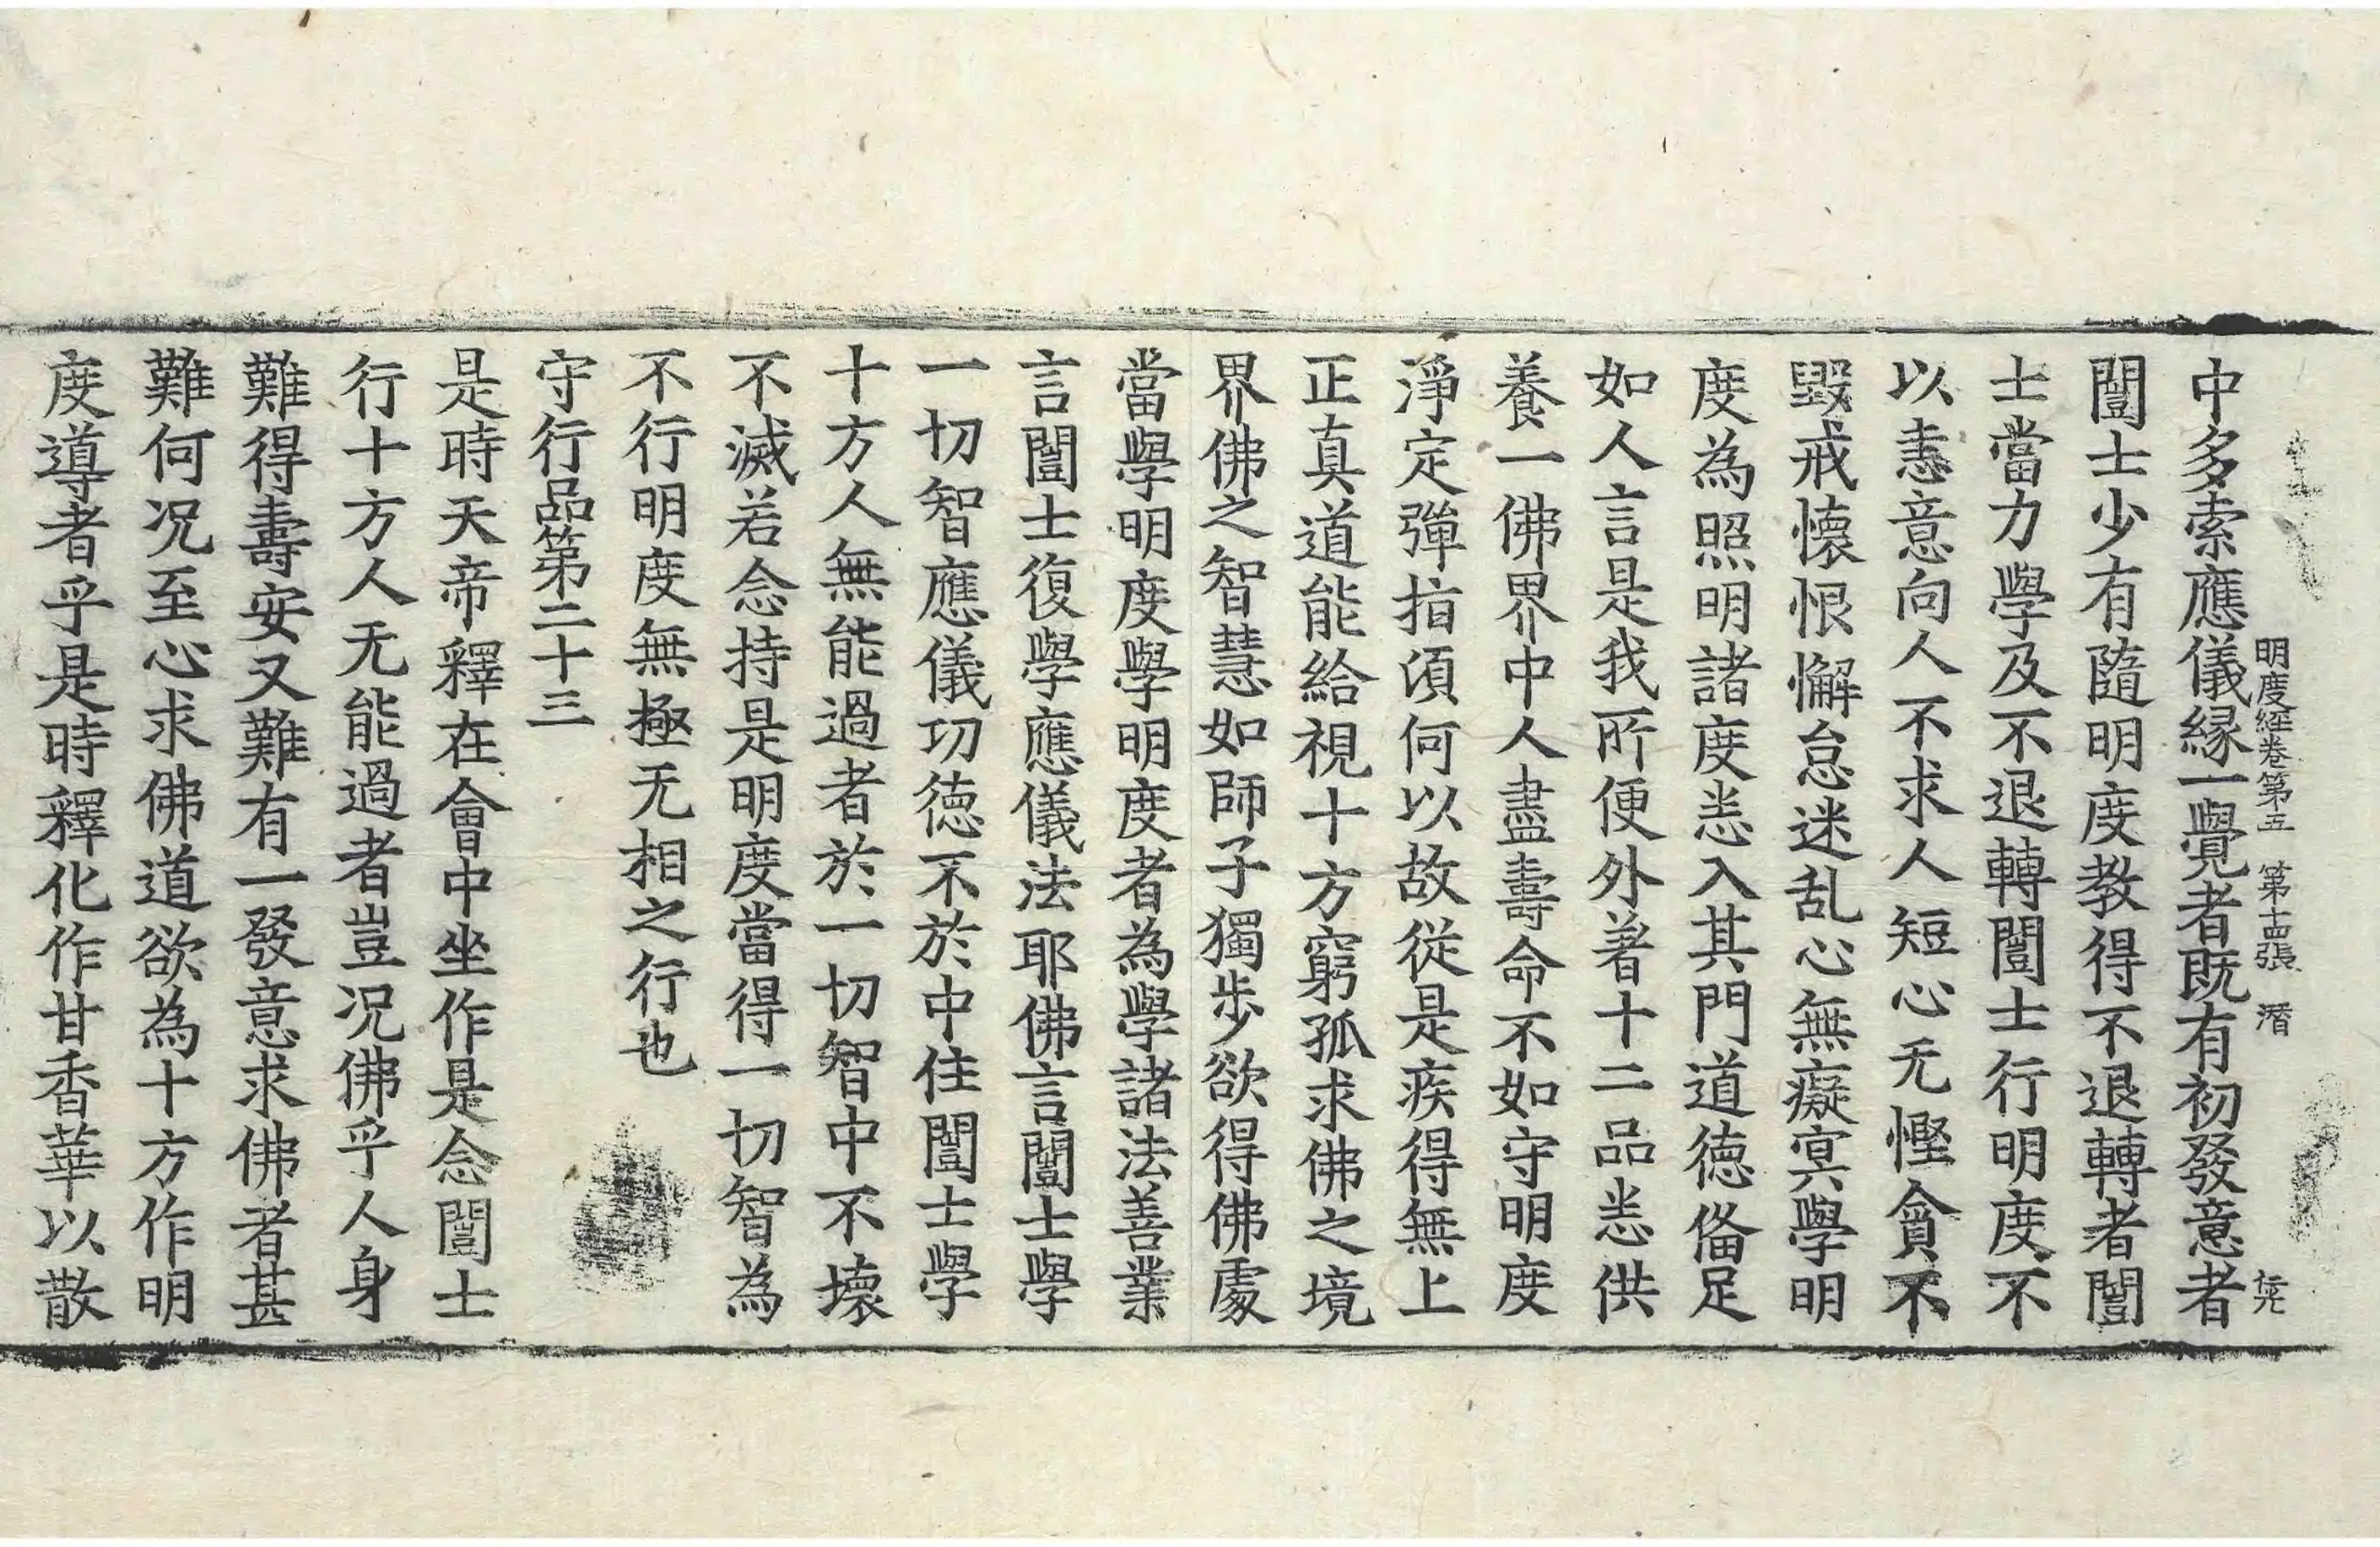 明度経卷第五　第十四張　潛
中多索應儀縁一覺者既有初發意者
闓士少有隨明度教得不退轉者闓
士當力學及不退轉闓士行明度不
以恚意向人不求人短心无慳貪不
毀戒懐恨懈怠迷乱心無癡㝠學明
度為照明諸度悉入其門道徳俻足
如人言是我所便外著十二品悉供
養一佛界中人盡壽命不如守明度
淨定彈指湏何以故從是疾得無上
正真道能給視十方窮孤求佛之境
界佛之智慧如師子獨步欲得佛處
當學明度學明度者為學諸法善業
言闓士復學應儀法耶佛言闓士學
一切智應儀功徳不於中住闓士學
十方人無能過者於一切智中不壊
不滅若念持是明度當得一切智為
不行明度無極无相之行也
守行品第二十三
是時天帝釋在會中坐作是念闓士
行十方人无能過者豈況佛乎人身
難得壽安又難有一發意求佛者甚
難何況至心求佛道欲為十方作明
度導者乎是時釋化作甘香華以散